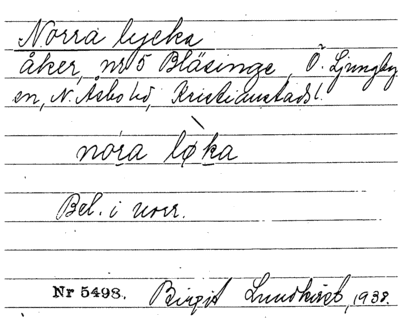 Norra lycka
åker, nr 5 Bläsinge, Ö. Ljungby
en, N. Åsbo hd, Kristianstads l.
nora lø̀ka
Bel. i norr.
Nr 5498. Birgit Lundkvist, 1938.